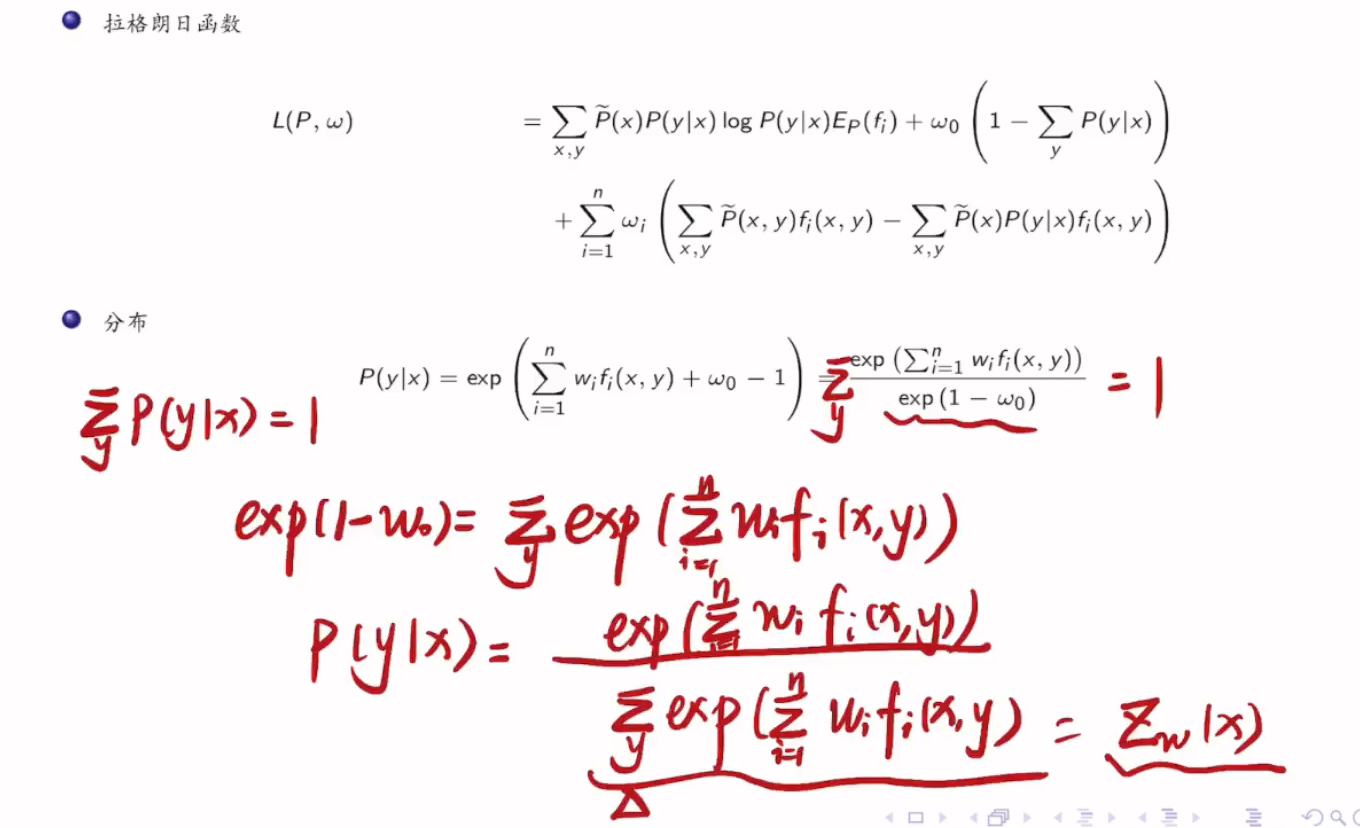 拉格朗日函数
L(P, ω) = ∑_{x,y} P̃(x)P(y|x) log P(y|x)E_P(f_i) + ω₀ (1 − ∑_y P(y|x))
+ ∑_{i=1}^{n} ω_i (∑_{x,y} P̃(x, y)f_i(x, y) − ∑_{x,y} P̃(x)P(y|x)f_i(x, y))
分布
P(y|x) = exp (∑_{i=1}^{n} w_i f_i(x, y) + ω₀ − 1) = ∑_y exp (∑_{i=1}^{n} w_i f_i(x, y)) / exp (1 − ω₀) = 1
∑_y P(y|x) = 1
exp(1-w₀) = ∑_y exp(∑_{i=1}^{n} w_i f_i(x,y))
P(y|x) = exp(∑_{i=1}^{n} w_i f_i(x,y)) / ∑_y exp(∑_{i=1}^{n} w_i f_i(x,y) = Z_w(x)
Δ